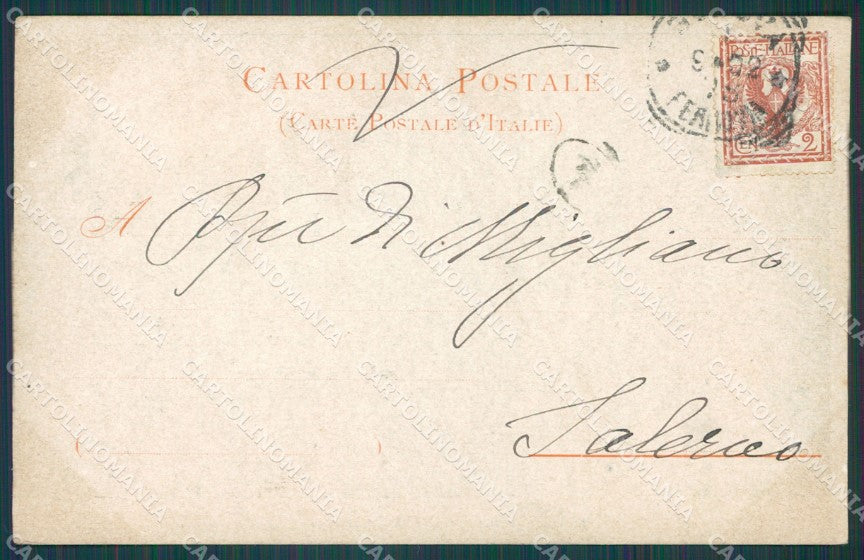 CARTOLINA POSTALE
(CARTE POSTALE D'ITALIE)
POSTE ITALIANE
CENT 2
FERROVIA
A
Di Migliano
Salerno
CARTOLINOMANIA